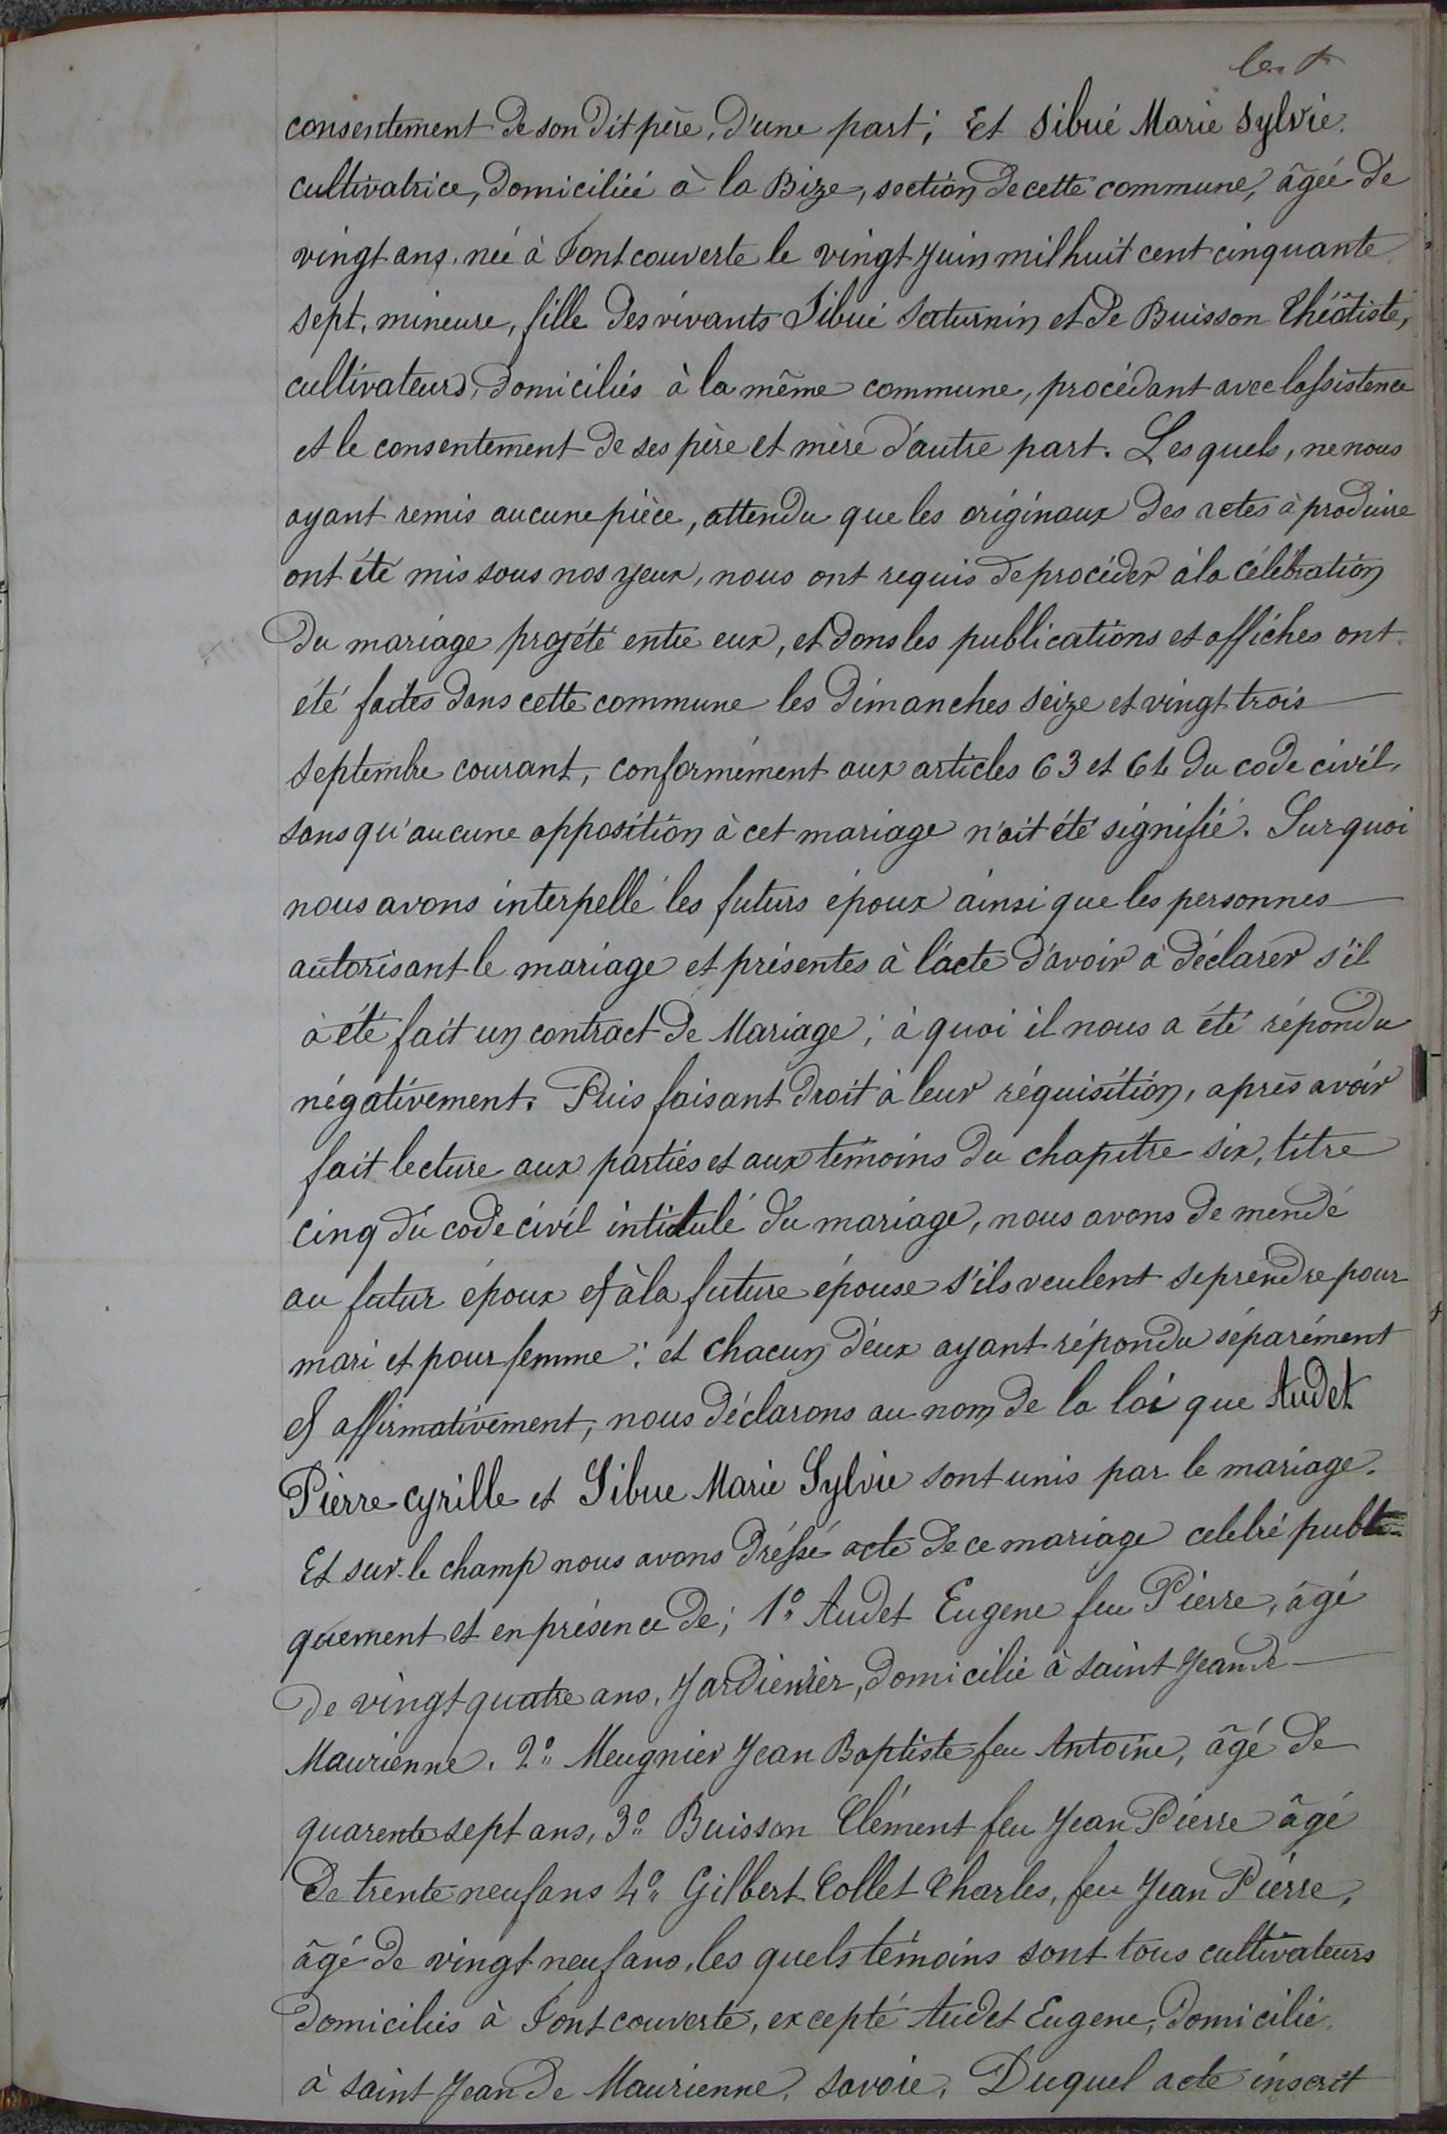 consentement de son dit père, d'une part; Et Sibué Marie Sylvie.
cultivatrice, domiciliée à la Bize, section de cette commune, âgée de
vingt ans, née à Fontcouverte le vingt Juin mil huit cent cinquante
sept, mineure, fille des vivants Sibué Saturnin et de Buisson Théotiste,
cultivateurs, domiciliés à la même commune, procédant avec lassistence
et le consentement de ses père et mère d'autre part. Les quels, ne nous
ayant remis aucune pièce, attendu que les originaux des actes à produire
ont été mis sous nos yeux, nous ont requis de procéder à la célébration
du mariage projété entre eux, et dons les publications et affiches ont
été faites dans cette commune les dimanches seize et vingt trois
septembre courant, conformément aux articles 63 et 64 du code civil,
sans qu'aucune opposition à cet mariage n'ait été signifié. Sur quoi
nous avons interpellé les futurs époux ainsi que les personnes
autorisant le mariage et présentes à l'acte d'avoir à déclarer s'il
à été fait un contract de Mariage; à quoi il nous a été répondu
négativement. Puis faisant droit à leur réquisition, après avoir
fait lecture aux parties et aux témoins du chapitre six, titre
cinq du code civil intitulé du mariage, nous avons de mendé
au futur époux et à la future épouse s'ils veulent se prendre pour
mari et pour femme: et chacun d'eux ayant répondu séparément
et affirmativement, nous déclarons au nom de la loi que Audet
Pierre cyrille et Sibue Marie Sylvie sont unis par le mariage.
Et sur-le champ nous avons dréssé acte de ce mariage celebré publi-
quement et en présence de; 1° Audet Eugene feu Pierre, âgé
de vingt quatre ans, Jardienier, domicilié à Saint Jean de
Maurienne. 2° Meugnier Jean Baptiste feu Antoine, âgé de
quarente sept ans, 3° Buisson Clément feu Jean Pierre âgé
de trente neuf ans 4° Gilbert Collet Charles, feu Jean Pierre,
âgé de vingt neuf ans, les quels témoins sont tous cultivateurs
domiciliés à Fontcouverte, excepté Audet Eugene, domicilié
à saint Jean de Maurienne, Savoie. Duquel acte inscrit